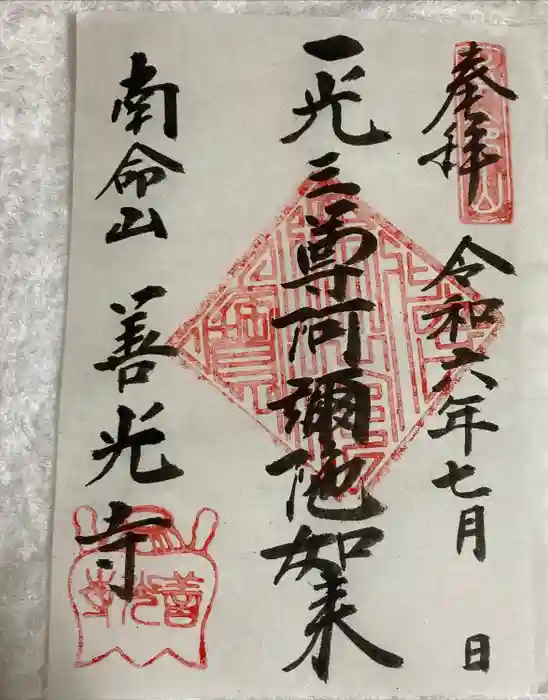 奉拝
令和六年七月 日
一光三尊阿彌陀如来
南命山 善光寺
善光寺